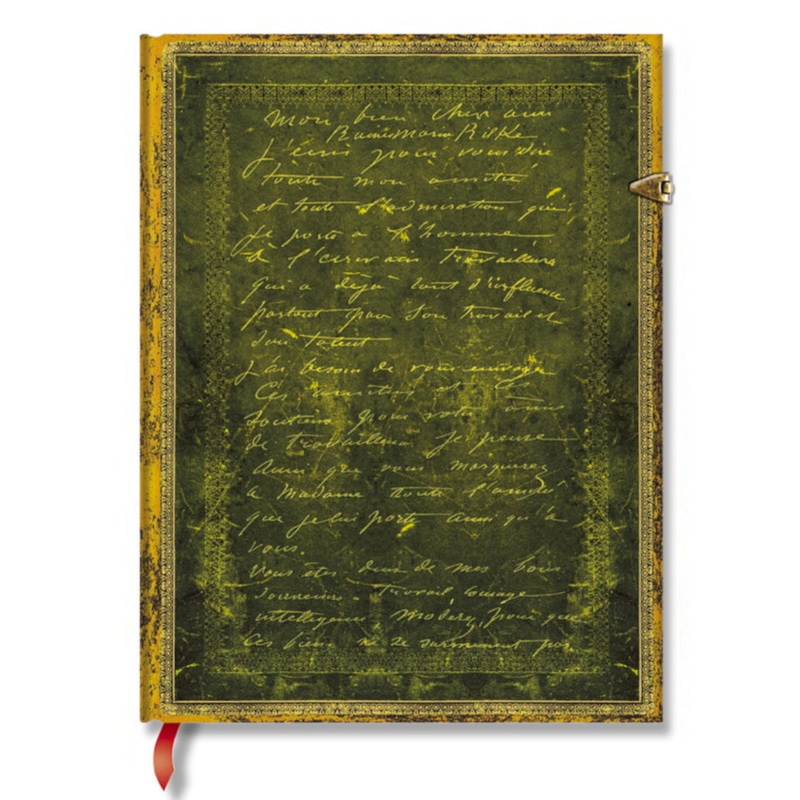 mon bien cher ami
Rainer Maria Rilke
J'écris pour vous dire
toute mon amitié
et toute l'admiration que
je porte à l'homme
à l'écrivain travailleur
qui a déjà tant d'influence
partout par son travail et
son talent
J'ai besoin de vous envoyer
Ces
soutiens pour votre âme
de travailleur je pense
Aussi que vous marquerez
à Madame toute l'amitié
que je lui porte ainsi qu'à
vous.
Vous êtes deux de mes bons
souvenirs. Travail courage
intelligence pour que
ces biens ne se surmenent pas.